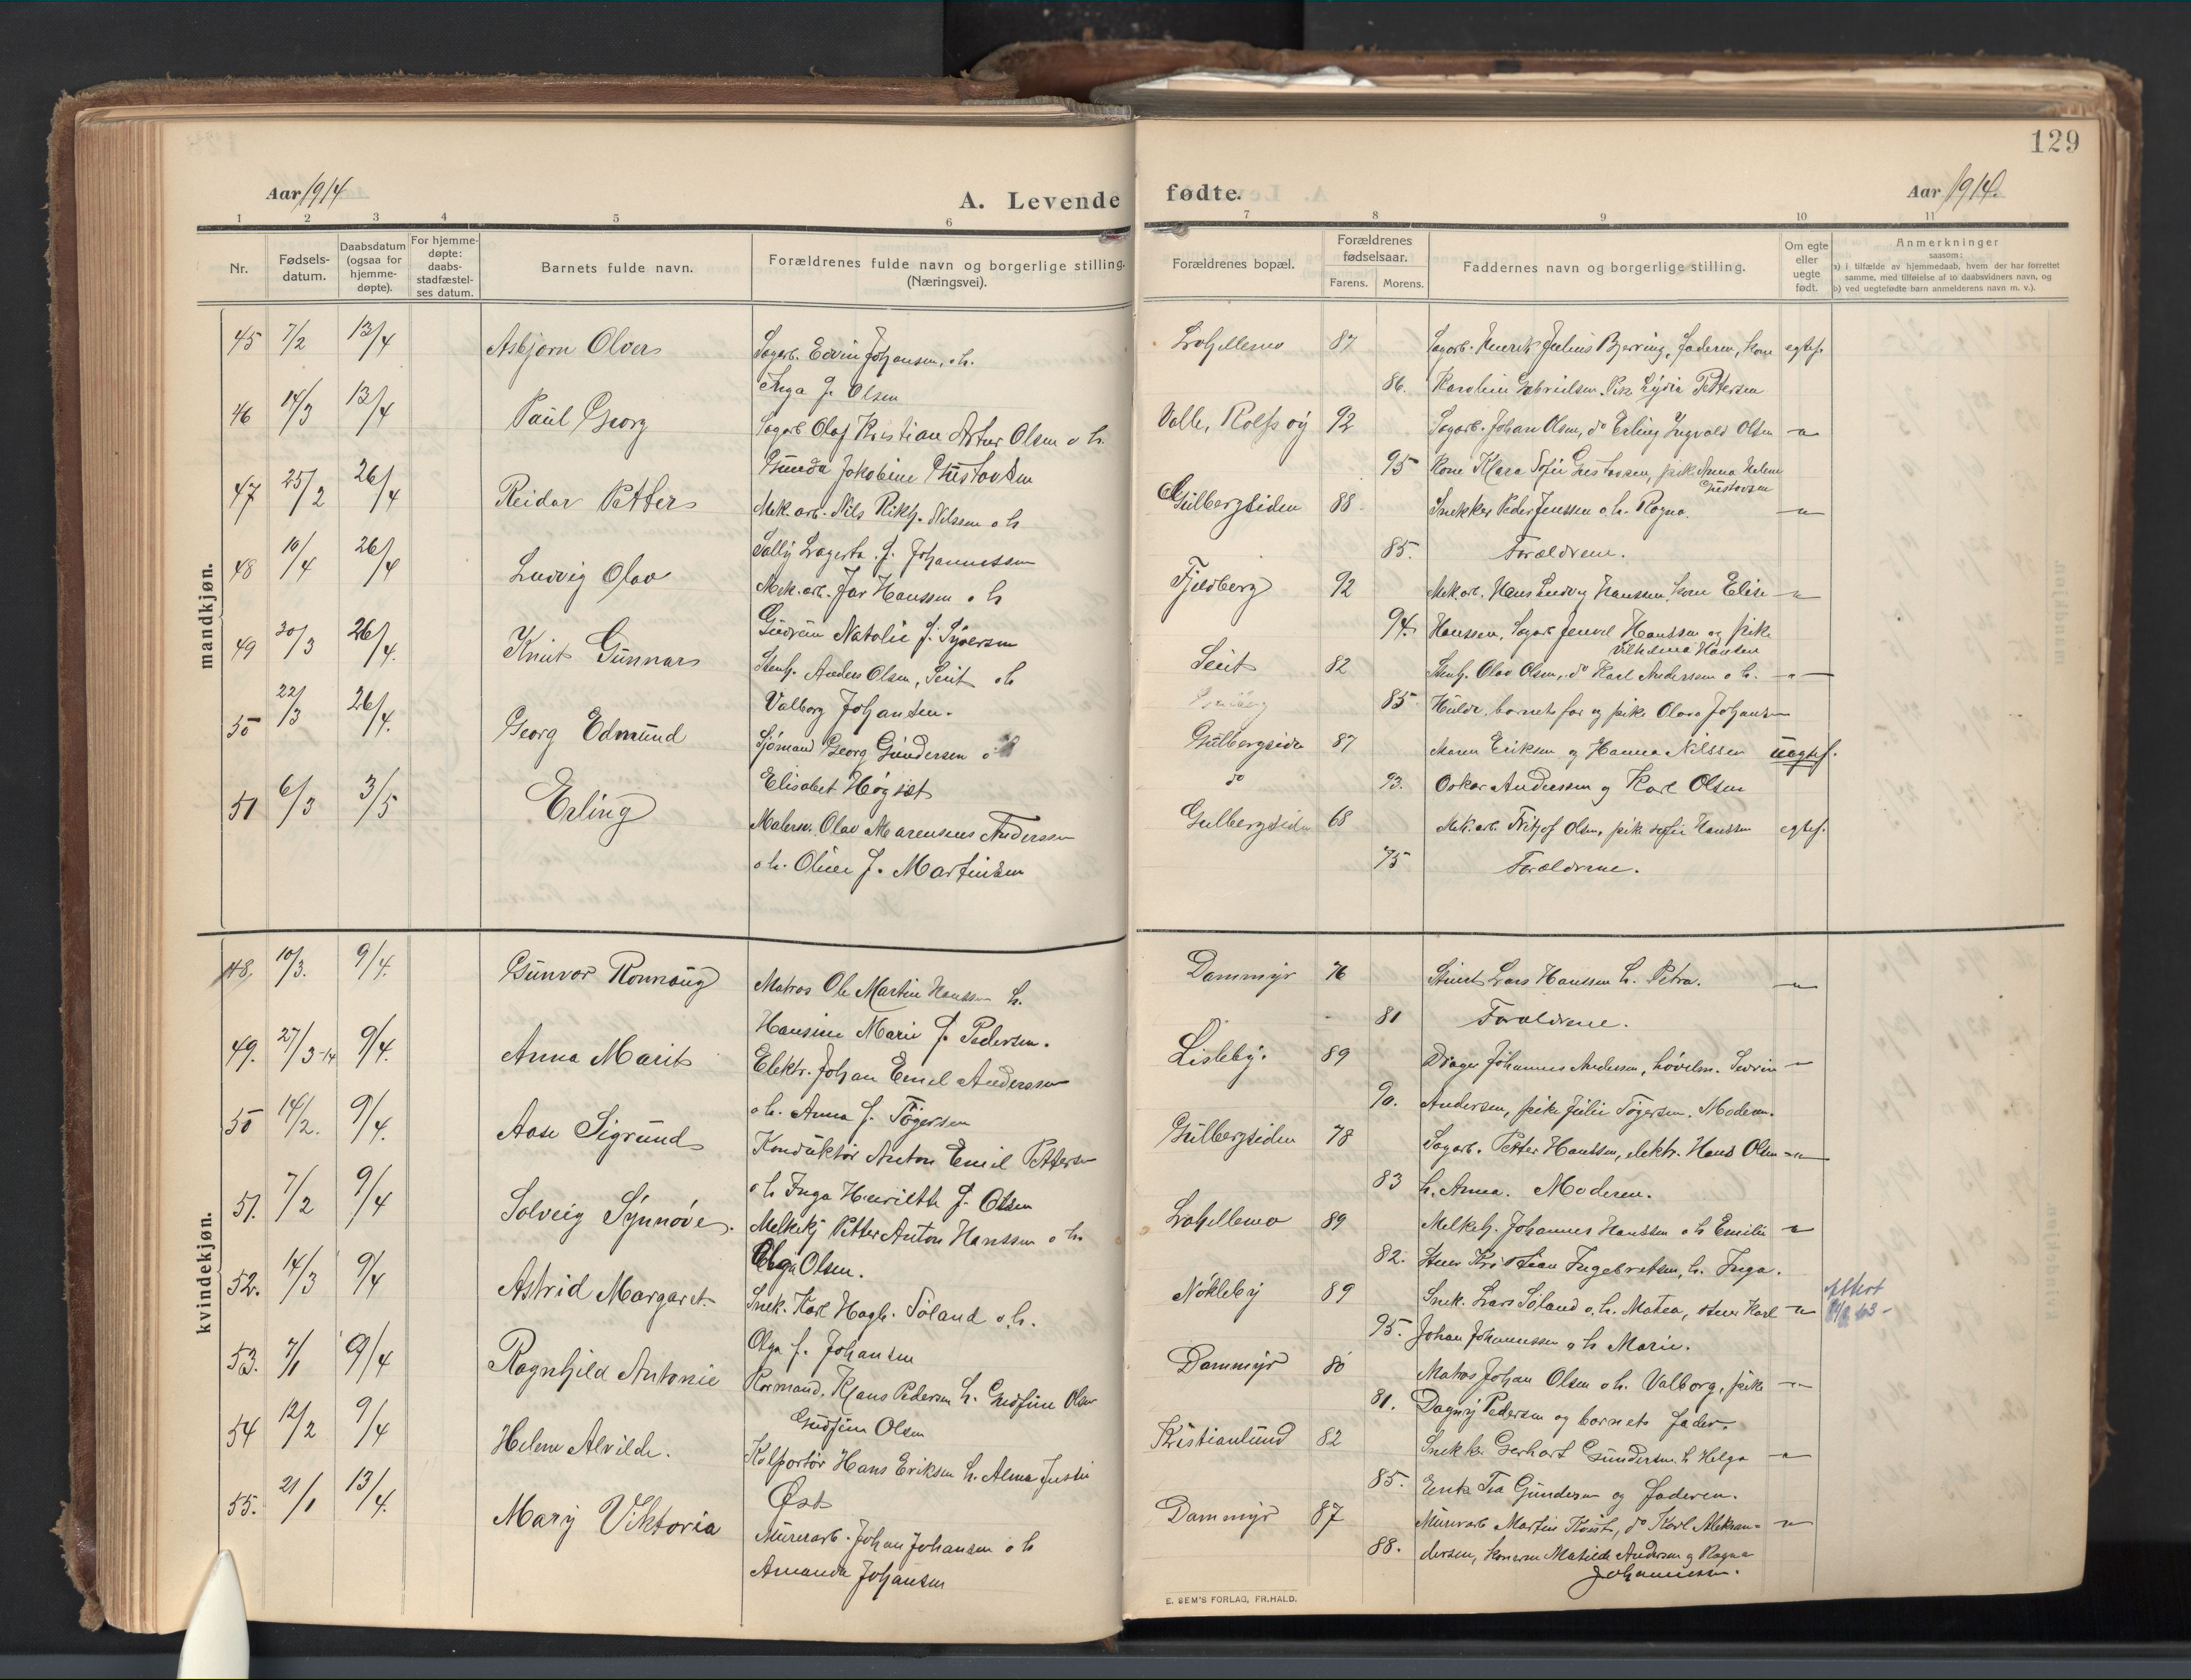 129
Aar 1914
A. Levende fødte.
Aar 1914.
1 2 3 4 5 6 7 8 9 10 11
Nr.
Fødsels-
datum.
Daabsdatum
(ogsaa for
hjemme-
døpte).
For hjemme-
døpte:
daabs-
stadfæstel-
ses datum.
Barnets fulde navn.
Forældrenes fulde navn og borgerlige stilling.
(Næringsvei).
Forældrenes bopæl.
Forældrenes
fødselsaar.
Farens. Morens.
Faddernes navn og borgerlige stilling.
Om egte
eller
uegte
født.
Anmerkninger
saasom:
a) i tilfælde av hjemmedaab, hvem der har forrettet
samme, med tilføielse af to daabsvidners navn, og
b) ved uegtefødte barn anmelderens navn m. v.).
mandkjøn.
45 7/2 13/4 Asbjørn Oliver Sagarb. Edvin Johansen, o h. 87 Sagarb. Henrik Julius Bjerring, Faderen, kone egtef.
Inga f. Olsen 86. Karoline Gabrielsen. Pik Lydia Pettersen
46 14/3 13/4 Paul Georg Sagarb Olaf Kristian Artur Olsen o h. Valle, Rolfsøy 92 Sagarb. Johan Olsen, do Erling Ingvald Olsen -"-
Gunda Jakobine Gustavsen 95 Kone Klara Sofie Gustavsen, pike Anna Helene
Gustavsen
47 25/2 26/4 Reidar Petter Mek. arb. Nils Rikh. Nilssen o h Gulbergsiden 88 Snekker Peder Jenssen o. h. Ragna. -"-
Sally Lagerta f. Johannessen 85. Forældrene.
48 10/4 26/4 Ludvig Olav Mek. arb. Ivar Hanssen o h Fjeldberg 92 Mek. arb. Hans Ludvig Hanssen, kone Elise -"-
Gudrun Natalie f. Syversen 94. Hanssen, Sagarb Hanssen og pike
Vilhelmine Hansen
49 30/3 26/4. Knut Gunnar Stenh. Anders Olsen, Seut o h Seut 82 Stenh. Olav Olsen, do Karl Anderssen o h. -"-
Valborg Johansen. 85 Hulda, barnets far og pike Olava Johansen
50 22/3 26/4. Georg Edmund Sjømand Georg Gundersen o Gulbergsiden 87 Maren Eriksen og Hanna Nilssen uegtef.
Elisabet Høgset do 93. Oskar Anderssen og Karl Olsen
51 6/3 3/5 Erling Malersv. Olav Marensius Anderssen Gulbergsiden 68 Mek. arb. Fritjof Olsen, pike Sofie Hanssen egtef.
o h. Oline f. Martinsen 75 Forældrene.
kvindekjøn.
48, 10/3. 9/4. Gunvor Ronnaug Matros Ole Martin Hanssen h. Dammyr 76 Lars Hanssen h. Petra. -"-
Hansine Marie f. Pedersen. 81 Forældrene.
49. 27/3-14 9/4. Anna Marit Elektr. Johan Emil Anderssen Lisleby. 89 Drager Johannes Andersen, høvelm. Severin -"-
o h. Anna f. Tøgersen 90. Andersen, pike Julie Tøgersen. Moderen.
50 14/2. 9/4. Aase Sigrund Konduktør Anton Emil Pettersen Gulbergsiden 78 Sagarb. Petter Hanssen, elektr. Hans Olsen -"-
o h Inga Henriette f. Olsen 83 h. Anna. Moderen.
51. 7/2 9/4 Solveig Synnøve. Melkekj Petter Anton Hanssen o h. 89 Melkeh. Johannes Hanssen o h Emilie -"-
Olga Olsen. 82. Kristian Ingebretsen, h. Inga.
52. 14/3 9/4 Astrid Margaret. Snek. Karl Hagb. Søland o. h. Nøkleby 89 Snek. Lars Søland o. h. Matea, Karl -"-
Olga f. Johansen 95. Johan Johannessen o h Marie.
53. 7/1 9/4 Ragnhild Antonie Rørmand, Klaus Pedersen h. Gudfine Olsen Dammyr 80 Matros Johan Olsen o h. Valborg, pike -"-
Gudfine Olsen 81. Dagny Pedersen og barnets fader.
54 12/2 9/4 Helene Alvilde. Kolportør Hans Eriksen h. Alma Justine Kristianlund 82 Snekker Gerhart Gundersen h Helga -"-
Øst 85. Enke Tea Gundersen og faderen.
55. 21/1 13/4. Mary Viktoria Murerarb. Johan Johansen o h Dammyr 87 Murerarb Martin Kvist, do Karl Aleksan- -"-
Amanda Johansen 88. dersen, konerne Matilde Andersen og Ragna
Johannessen.
E. SEM'S FORLAG, FR.HALD.